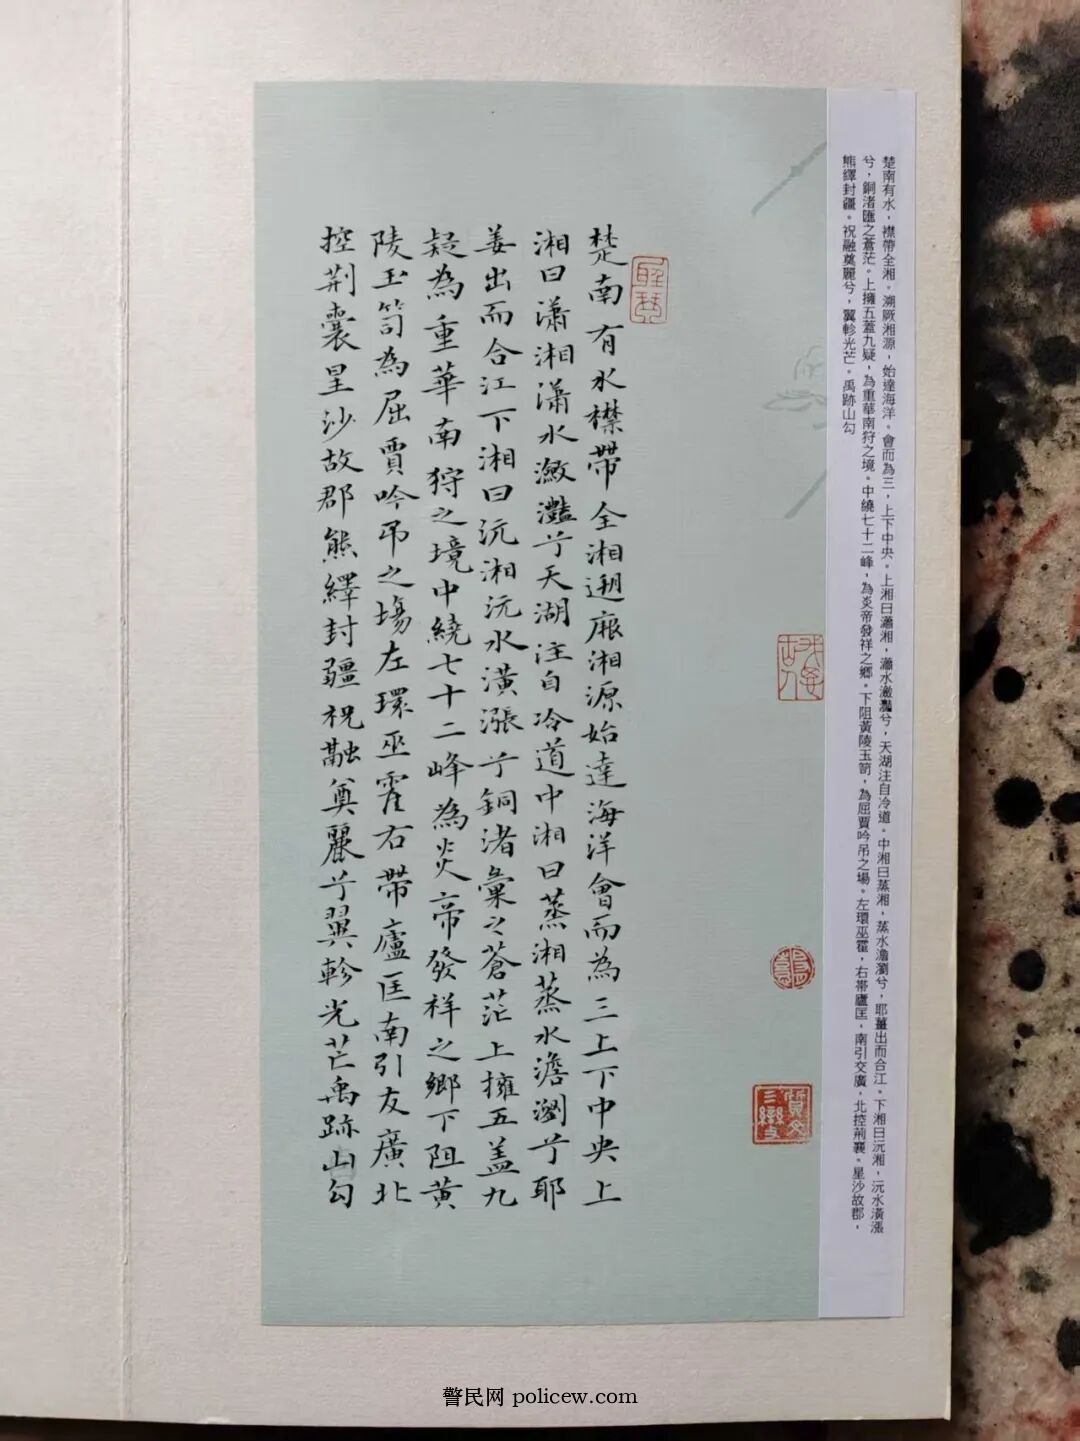 楚南有水襟帶全湘遡厥湘源始達海洋會而為三上下中央上
湘曰瀟湘瀟水瀲灩兮天湖注自冷道中湘曰蒸湘蒸水澹瀏兮耶
姜出而合江下湘曰沅湘沅水潢漲兮銅渚彙之蒼茫上擁五蓋九
疑為重華南狩之境中繞七十二峰為炎帝發祥之鄉下阻黄
陵玉笥為屈賈吟吊之場左環巫霍右帶廬匡南引友廣北
控荆囊星沙故郡熊繹封疆祝融奠麗兮翼軫光芒禹跡山勾
楚南有水，襟帶全湘。溯厥湘源，始達海洋。會而為三，上下中央。上湘曰瀟湘，瀟水瀲灩兮，天湖注自冷道。中湘曰蒸湘，蒸水澹瀏兮，耶薑出而合江。下湘曰沅湘，沅水潢漲
兮，銅渚匯之蒼茫。上擁五蓋九疑，為重華南狩之境。中繞七十二峰，為炎帝發祥之鄉。下阻黃陵玉笥，為屈賈吟吊之場。左環巫霍，右帶廬匡，南引交廣，北控荊襄。星沙故郡，
熊繹封疆。祝融奠麗兮，翼軫光芒。禹跡山勾
警民网 policew.com